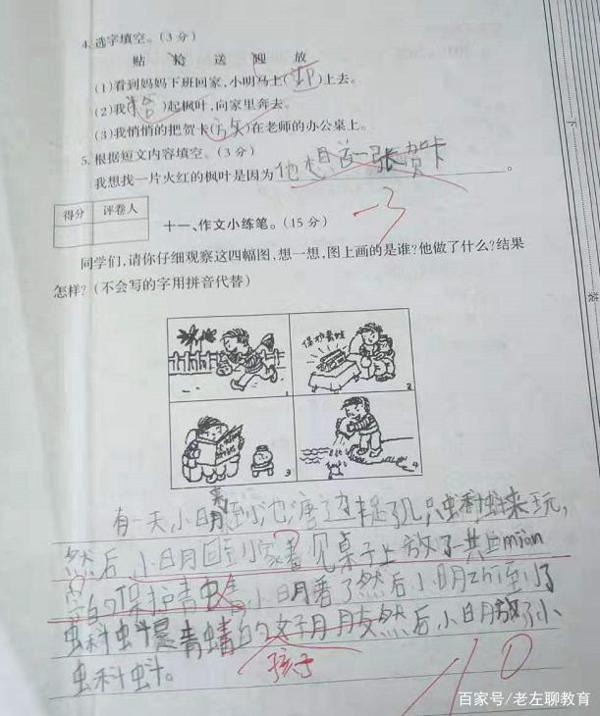 4. 选字填空。(3分)
贴 拾 送 迎 放
(1)看到妈妈下班回家,小明马上(迎)上去。
(2)我(拾)起枫叶,向家里奔去。
(3)我悄悄的把贺卡(放)在老师的办公桌上。
5. 根据短文内容填空。(3分)
我想找一片火红的枫叶是因为他想送一张贺卡。
-3
得分 评卷人
十一、作文小练笔。(15分)
同学们,请你仔细观察这四幅图,想一想,图上画的是谁?他做了什么?结果
怎样?(不会写的字用拼音代替)
保护青蛙
1
2
3
4
有一天,小明到池塘边捉了几只蝌蚪来玩,
然后小明回到家看见桌子上放了一共些mian
写的保护青蛙 小明看了然后小明zhi道了
蝌蚪是青蜻的女子月月友然后小明放了小
孩子
蝌蚪。
10
百家号/老左聊教育